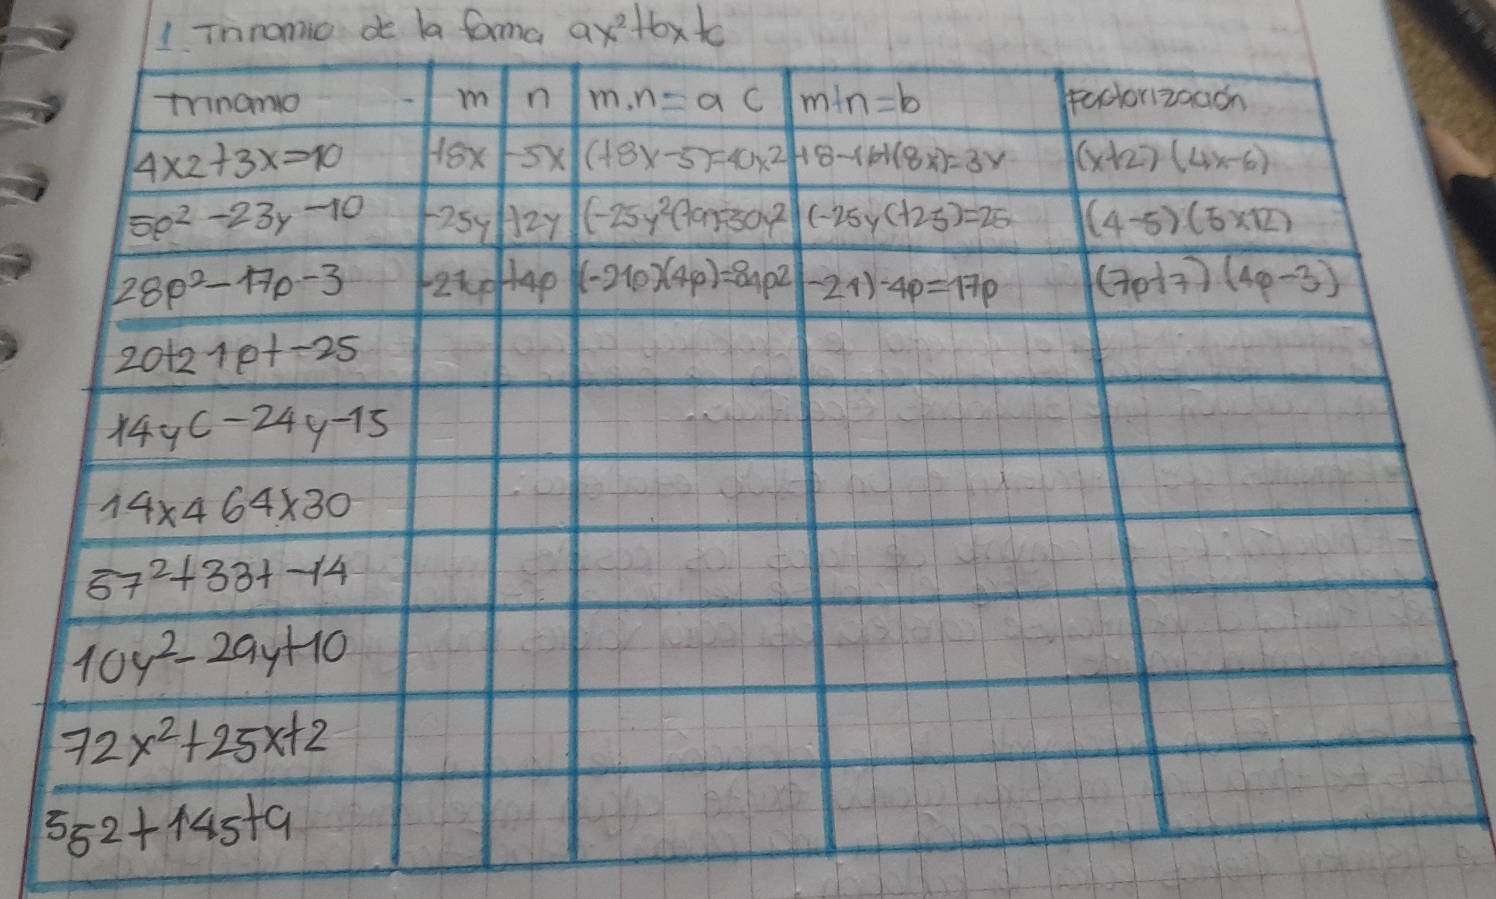 1. Trinomio de la forma ax²+bx+c
Trinomio m n m.n=a c m+n=b Factorización
4x2+3x=10 +8x -5x (+8x-5)=40x2 (x+2) (4x-6)
5p²-23y-10 -25y +2y (-25y(+25)=25 (4-5)(5x12)
28p²-17p-3 +4p (-21p)(4p)=84p2 -21)-4p=17p (7p+7) (4p-3)
20+21p+-25
14yc-24y-15
14x464x30
57²+33+-14
10y²-29y+10
72x²+25x+2
552+14s+9